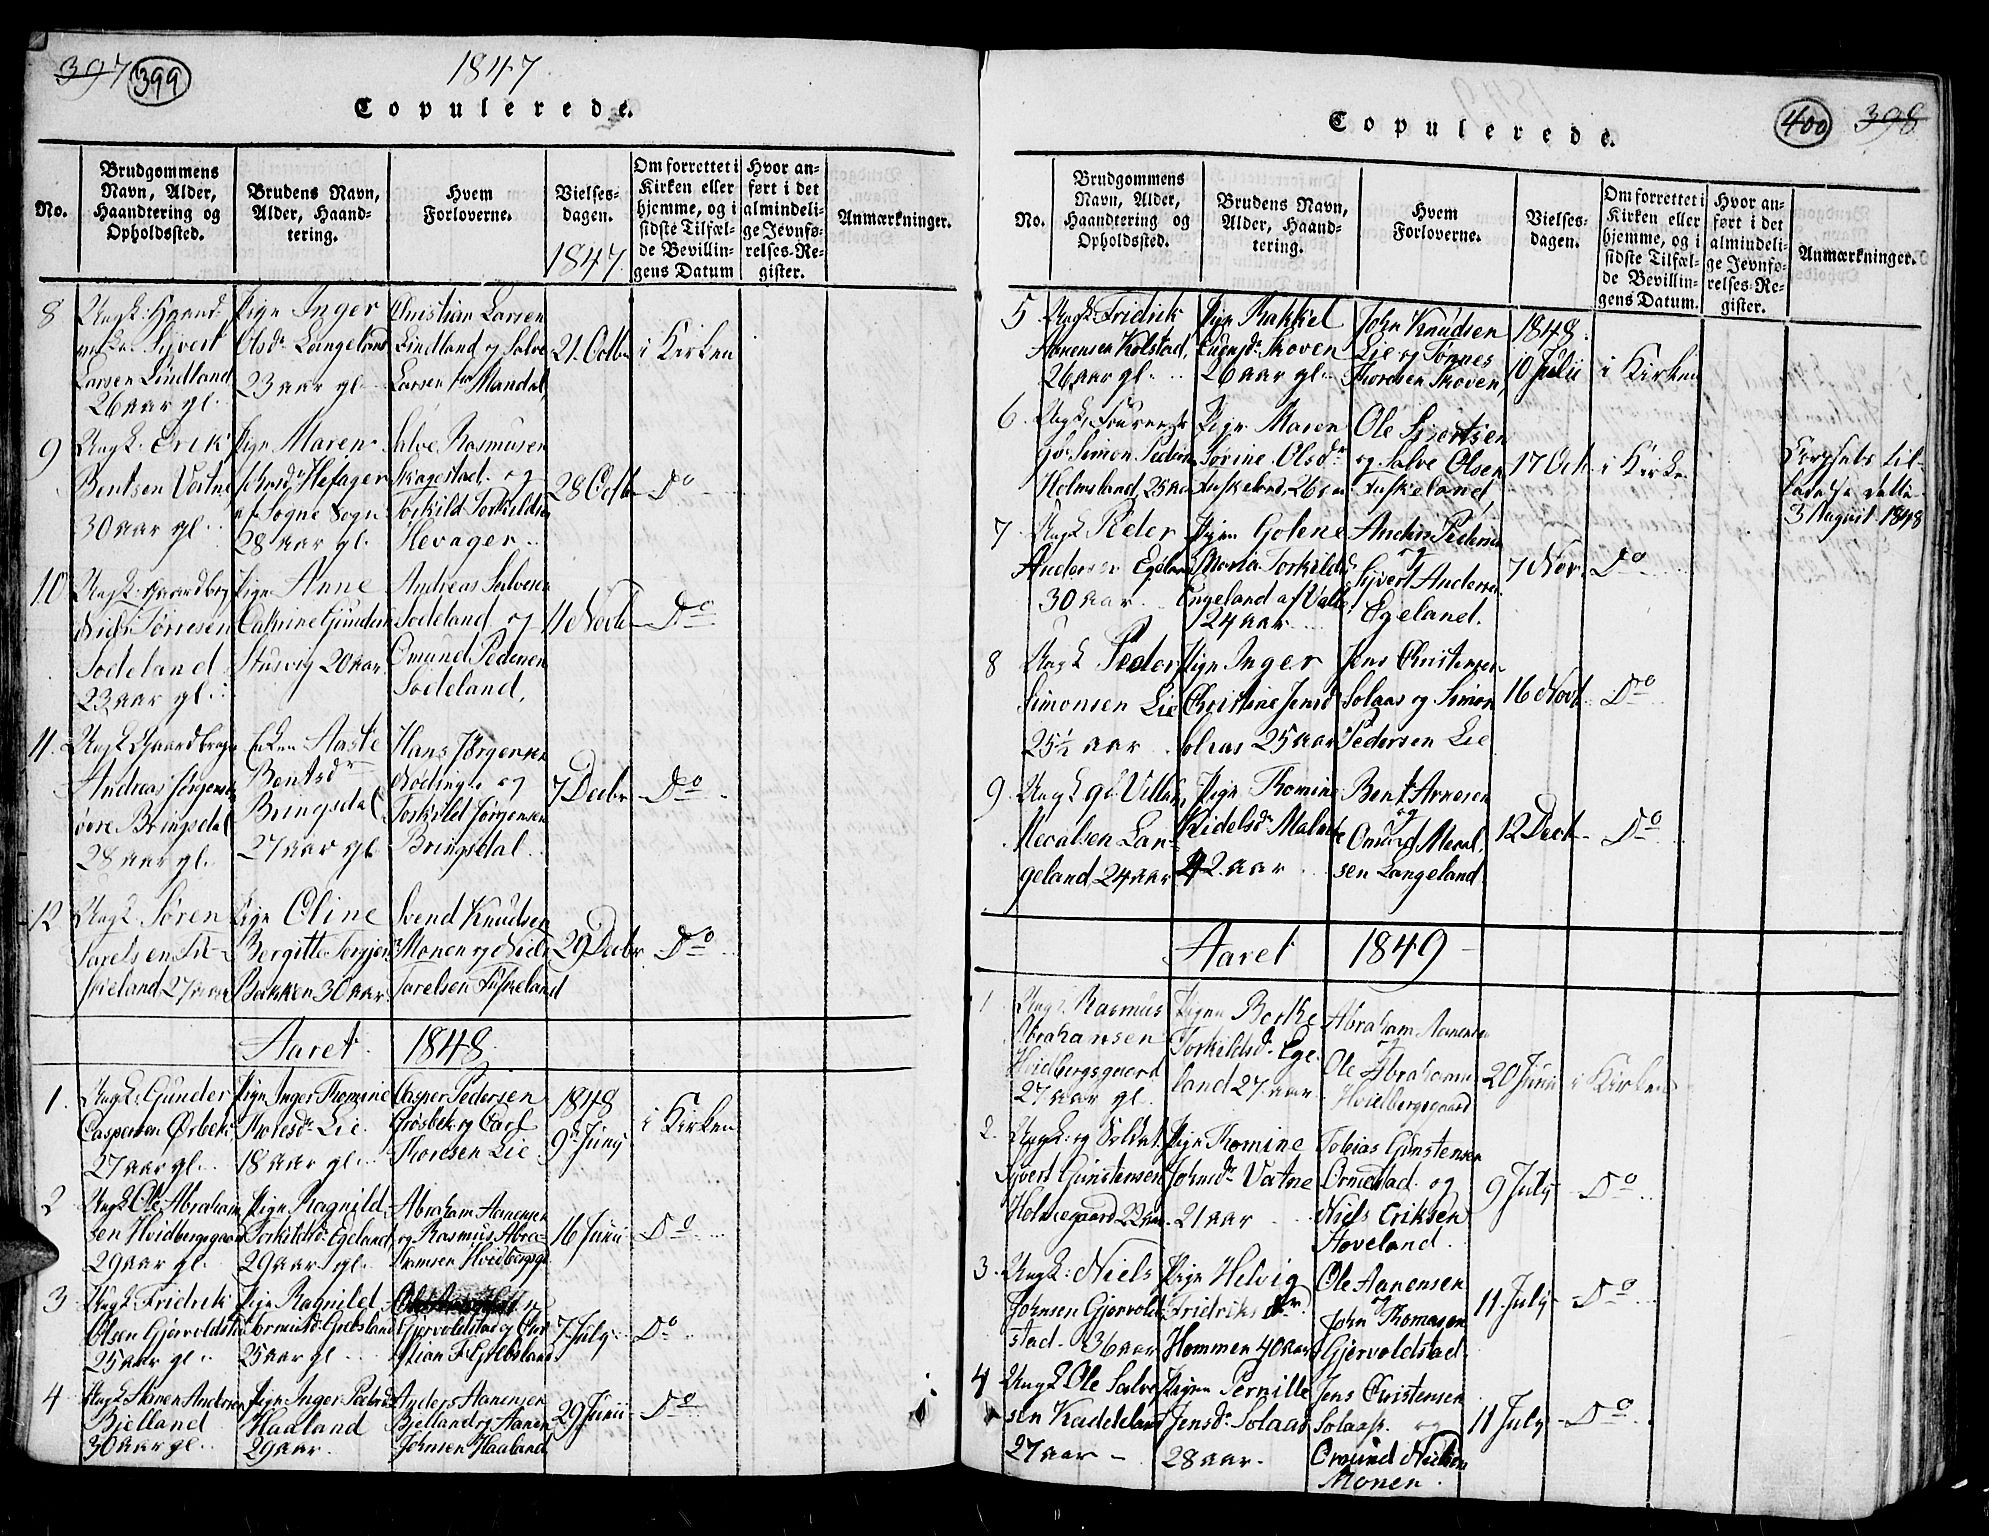 397 399
1847
Copulerede.
No.
Brudgommens
Navn, Alder,
Haandtering og
Opholdssted.
Brudens Navn,
Alder, Haand-
tering.
Hvem
Forloverne.
Vielses-
dagen.
1847
Om forrettet i
Kirken eller
hjemme, og i
sidste Tilfæl-
de Bevillin-
gens Datum
Hvor an-
ført i det
almindeli-
ge Jevnfø-
relses-Re-
gister.
Anmærkninger.
8
Sivert
Larsen Lindland
26 aar gl.
Pige Inger
Olsdr Langeland
23 aar gl.
Christian Larsen
Lindland og Salve
Larsen fra Mandal
21 Octbr
i Kirken
9
Ungk. Erik
Bentsen Vatne
30 aar gl.
Pige Maren
af Sogne Sogn
28 aar gl.
Salve Rasmusen
og
Torkild Torkildsen
Hevager
28 Octbr
Do
10
Ungk. Gaardbr
Tørresen
Sodeland
23 aar gl.
Pige Anne
Cathrine
20 aar
Andreas Salvesen
Sodeland og
Omund Pedersen
Sodeland,
11 Novbr
Do
11.
Ungk Gaardbruger
Andreas Jørgensen
øvre Bringsdal
28 aar gl.
Enken Aaste
Bentsdr
Bringsdal
27 aar gl
Hans Jørgensen
og
Torkild Jørgensen
Bringsdal
7 Decbr
Do
12
Ungk Søren
27 aar
Pige Oline
Bergitte
Bakken 30 aar
Svend Knudsen
Monen og
Tarelsen Fuskeland
29 Decbr
Do
Aaret 1848
1.
Ungk. Gunder
Caspersen Ørbek
27 aar gl.
Pige Inger Thomine
Lie
18 aar gl.
Casper Pedersen
og Carl
Thoresen Lie
1848
9 Juny
i Kirken
2
Ungk Ole Abraham
sen Hvidbergsgaard
29 aar gl.
Pige Ragnild
Torkildsdr Egeland
29 aar gl.
Abraham Aanensen
og Rasmus Abra-
hamsen Hvidbergsgd
16 Junii
Do
3
Ungk Fridrik
Olsen Gjervoldstad
25 aar gl.
Pige Ragnild
25 aar gl
Gjervoldstad og Chri
stian
7 July
Do
4
Ungk Aanen Andersen
Bjelland
30 aar gl.
Pige Inger
Haaland
29 aar.
Anders Aanensen
Bjelland og Aanen
Johnsen Haaland
29 Junii
Do
400 398
Copulerede.
No.
Brudgommens
Navn, Alder,
Haandtering og
Opholdssted.
Brudens Navn,
Alder, Haand-
tering.
Hvem
Forloverne.
Vielses-
dagen.
Om forrettet i
Kirken eller
hjemme, og i
sidste Tilfæl-
de Bevillin-
gens Datum.
Hvor an-
ført i det
almindeli-
ge Jevnfø-
relses-Re-
gister.
Anmærkninger.
5
Ungk Fridrik
Aanensen Kolstad,
26 aar gl.
Pige Rakkel
Skoven
26 aar gl.
John Knudsen
Lie og Tønnes
Thoresen Skoven,
1848
10 Julii
i Kirken
6
Simon Pedersen
Holmsland, 25 aar
Pige Maren
Sovine Olsdr
Fuskeland, 26 aar
Ole Sivertsen
og Salve Olsen
Fuskeland,
17 Oct
i Kirke
3 August 1848
7
Ungk Peder
Andersen Egeland
30 aar
Pigen Golene
Maria Torkildsd
Engeland af Valle
24 aar
Anders Pedersen
og
Sivert Andersen
Egeland.
7 Nov.
Do
8
Ungk Peder
Simonsen Lie
25½ aar
Pige Inger
Christine Jensd
Solaas 25 aar
Jens Christensen
Solaas og Simon
Pedersen Lie
16 Novbr
Do
9
Ungk gl. Villum
Lan-
geland, 24 aar
Pige Thomine
42 aar
Bent Arnesen
og
Omund
sen Langeland
12 Decb
Do
Aaret 1849
1
Ungk. Rasmus
Abrahamsen
Hvidbergsgaard
27 aar gl.
Pigen Berthe
Torkildsd. Ege-
land 27 aar
Abraham Aanensen
og
Ole Abrahamsen
Hvidbergsgaard
20 Junii
i Kirken
2.
Ungk. og Soldat
Sivert Gunstensen
Holmegaard 22 aar
Pige Thomine
Johnsdr Vatne
21 aar
Tobias Gunstensen
Ormestad og
Niels Eriksen
Aaveland.
9 July
Do
3.
Ungk. Niels
Johnsen Gjervold
stad. 36 aar
Pige Helvig
Fridriksdr.
Hommen 40 aar
Ole Aanensen
og
John Thomasen
Gjervoldstad.
11 July
Do
4
Ungk Ole Salve
sen Kaddeland
27 aar
Pigen Pernille
Jensdr Solaas
28 aar.
Jens Christensen
Solaas og
Omund Nielsen
Monen.
11 July
Do